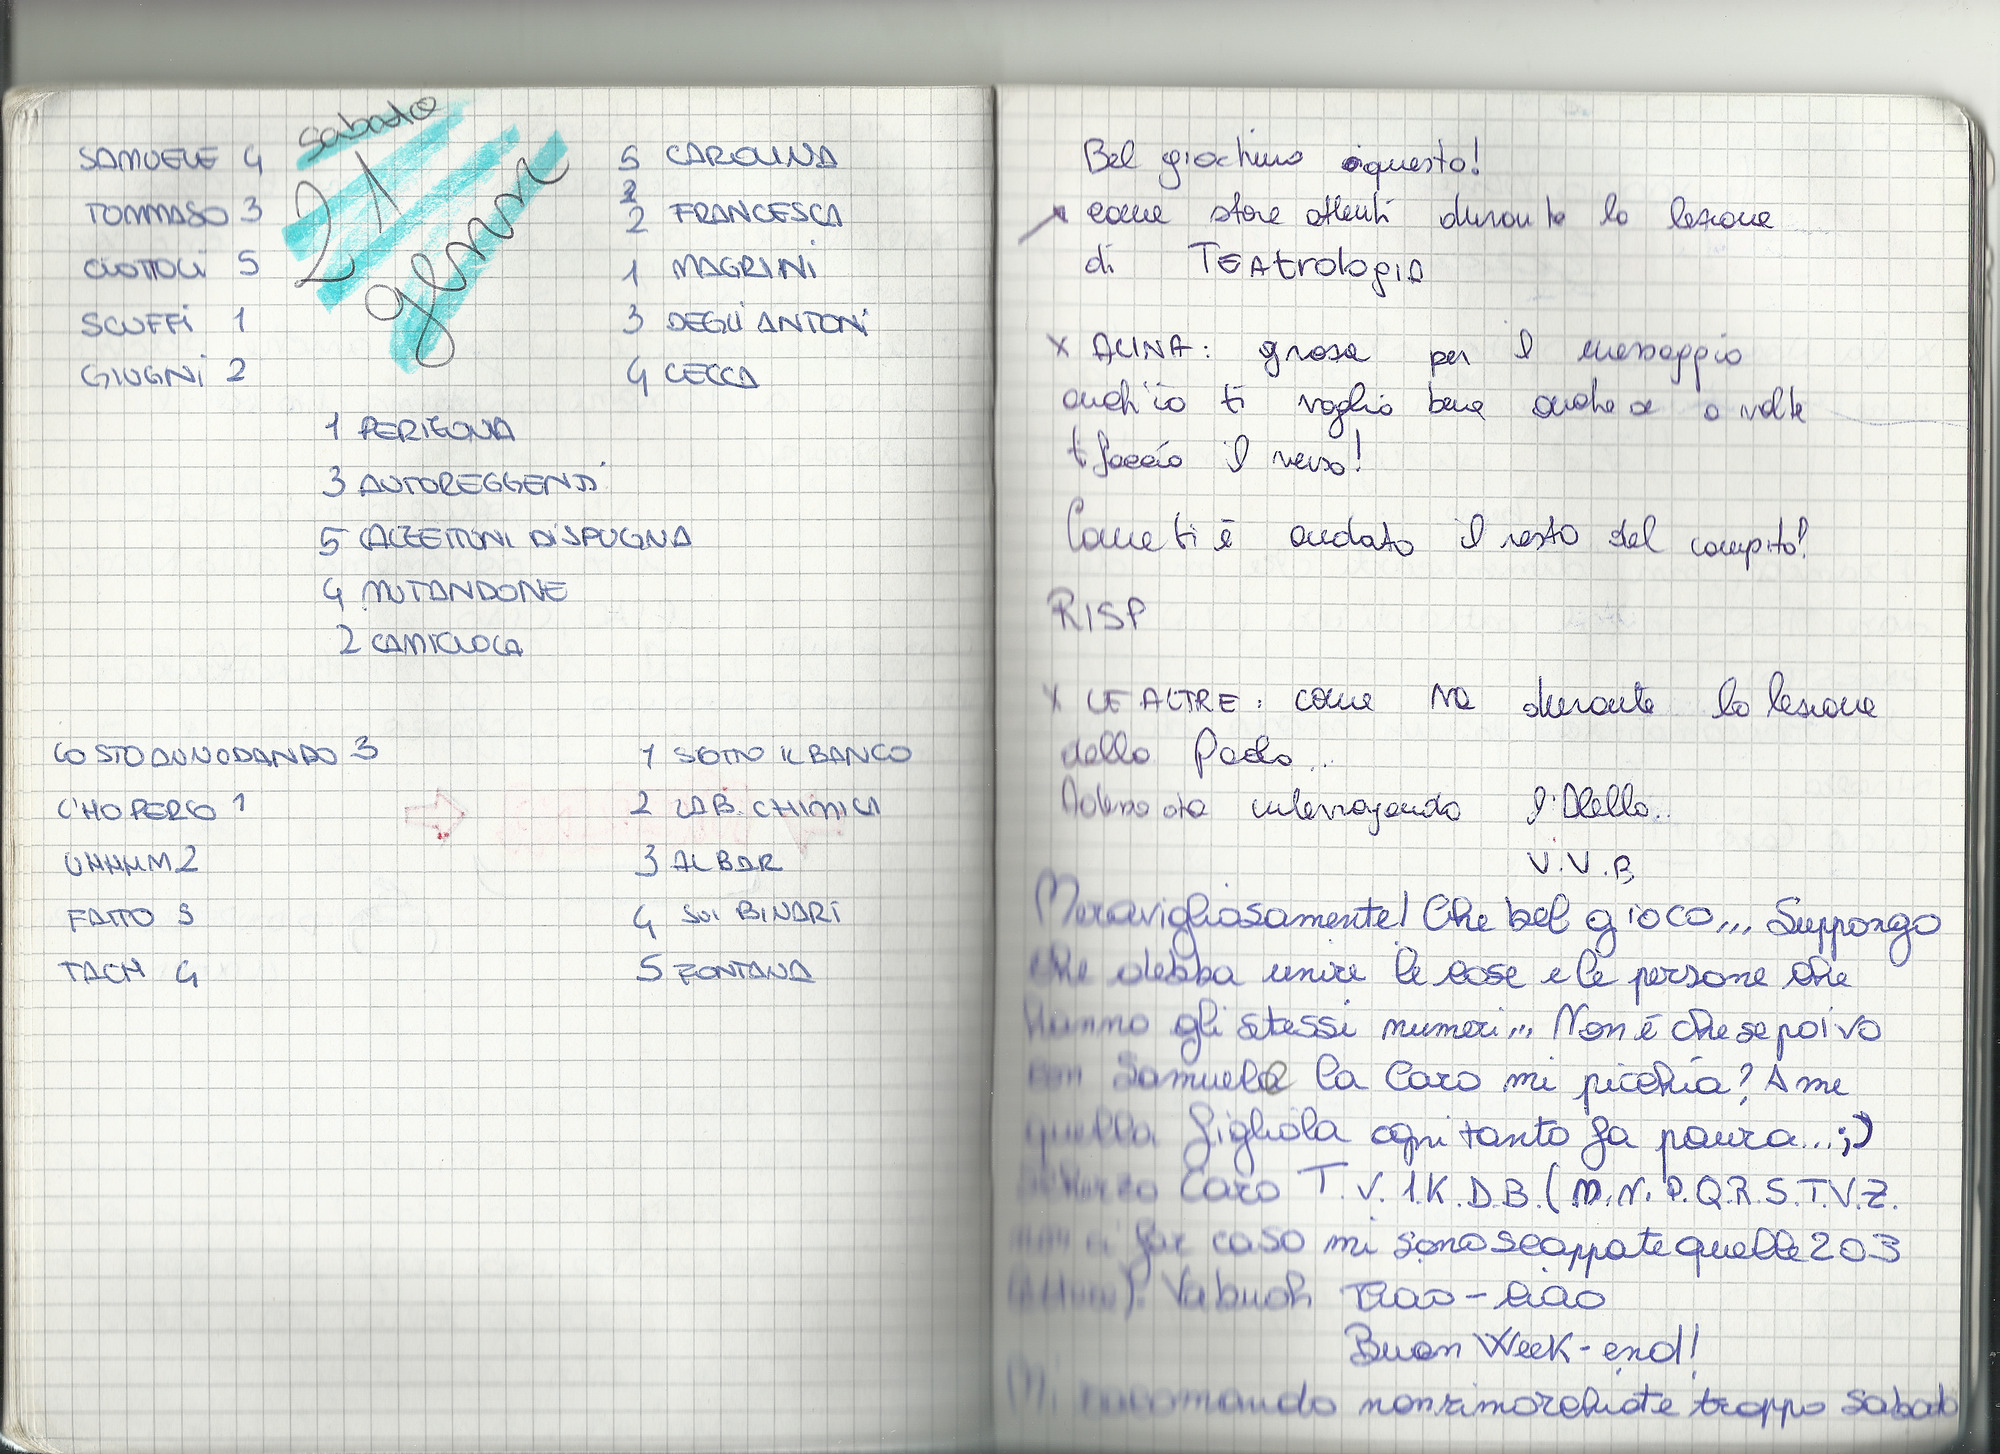 sabato
21
genn
SAMUELE 4
TOMMASO 3
CIOTTOLI 5
SCUFFI 1
GIUGNI 2
5 CAROLINA
2
2 FRANCESCA
1 MAGRINI
3 DEGL'ANTONI
4 CECCA
1 PERIZOMA
3 AUTOREGGENTI
5 CALZETTONI DI SPUGNA
4 MUTANDONE
2 CAMICIOLA
LO STO ANNODANDO 3
L'HO PERSO 1
UHHMM 2
FATTO 5
TACH 4
1 SOTTO IL BANCO
2 LAB. CHIMICA
3 AL BAR
4 SUI BINARI
5 FONTANA
Bel giochino questo!
come stare attenti durante la lezione
di TEAtrologIA
X ALINA: grazie per il messaggio
anch'io ti voglio bene anche se a volte
t faccio il verso!
Come ti è andato il resto del compito?
RISP
X LE ALTRE: come va durante la lezione
della Paola...
Adesso sta interrogando l'Alello..
V.V.B
Meravigliosamente! Che bel gioco... Suppongo
che debba unire le cose e le persone che
hanno gli stessi numeri... Non è che se poi vo
con Samuele la Caro mi picchia? A me
quella figliola ogni tanto fa paura...;)
Scherzo Caro T.V.1.K.D.B. (M.N.P.Q.R.S.T.V.Z.
non ci far caso mi sono scappate quelle 2 o 3
lettere). Vabuoh Ciao-ciao
Buon Week-end!
Mi raccomando non rimorchiate troppo sabato